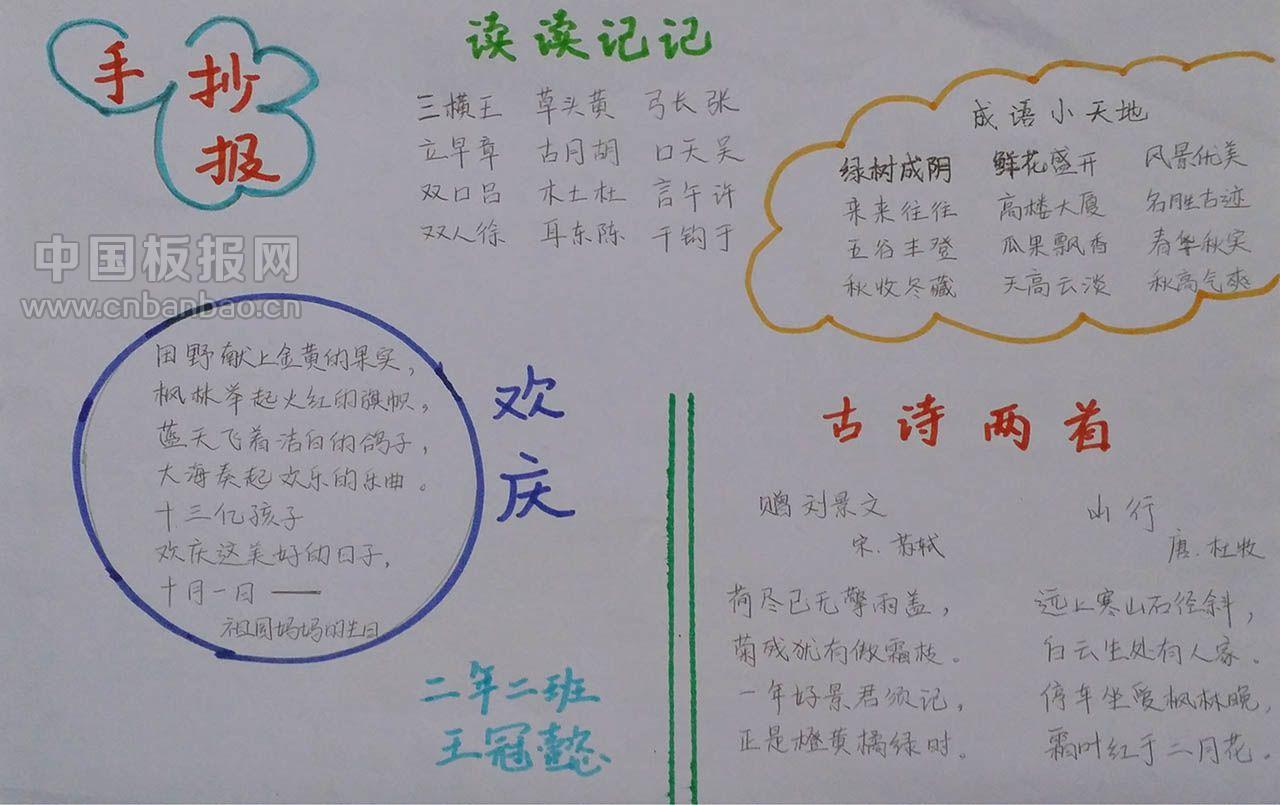 手抄报
读读记记
三横王 草头黄 弓长张
立早章 古月胡 口天吴
双口吕 木土杜 言午许
双人徐 耳东陈 干钩于
成语小天地
绿树成阴 鲜花盛开 风景优美
来来往往 高楼大厦 名胜古迹
五谷丰登 瓜果飘香 春华秋实
秋收冬藏 天高云淡 秋高气爽
中国板报网
www.cnbanbao.cn
田野献上金黄的果实，
枫林举起火红的旗帜，
蓝天飞着洁白的鸽子，
大海奏起欢乐的乐曲。
十三亿孩子
欢庆这美好的日子，
十月一日——
祖国妈妈的生日
欢庆
二年二班
王冠懿
古诗两首
赠刘景文
宋.苏轼
荷尽已无擎雨盖，
菊残犹有傲霜枝。
一年好景君须记，
正是橙黄橘绿时。
山行
唐.杜牧
远上寒山石径斜，
白云生处有人家。
停车坐爱枫林晚，
霜叶红于二月花。